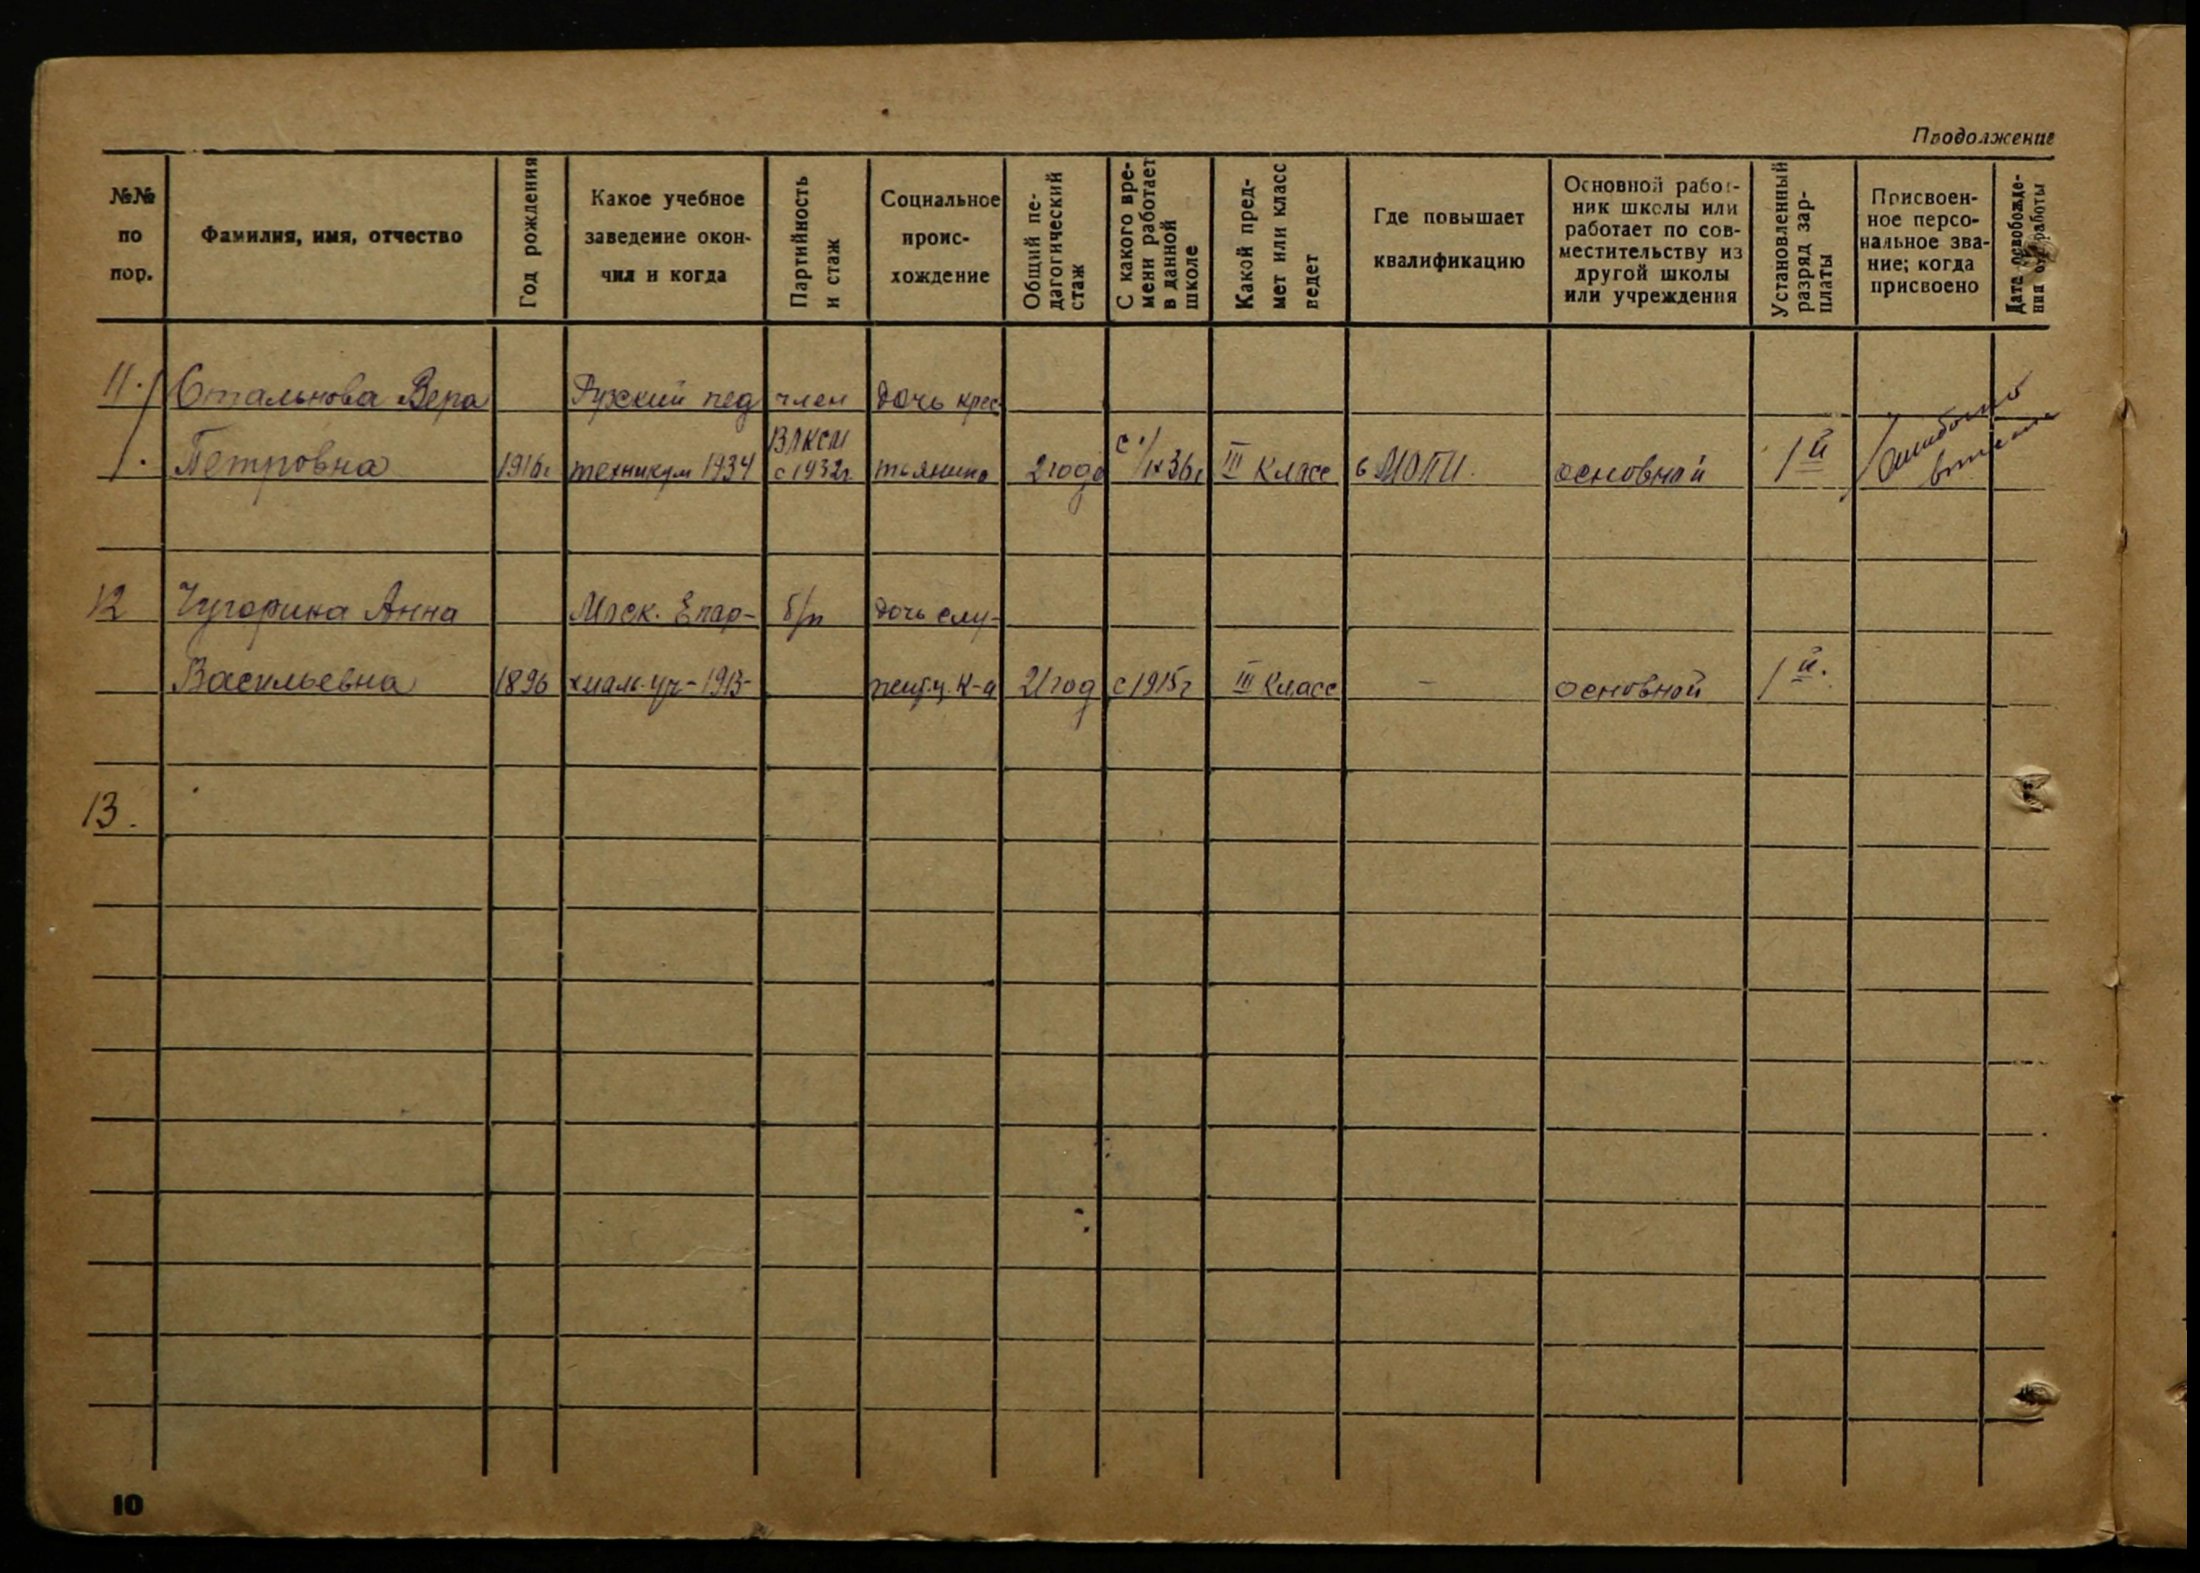 Продолжение
№№ по пор.
Фамилия, имя, отчество
Год рождения
Какое учебное заведение окон-
чил и когда
Партийность и стаж
Социальное проис-
хождение
Общий пе-
дагогический стаж
С какого вре-
мени работает в данной школе
Какой пред-
мет или класс ведет
Где повышает квалификацию
Основной работ-
ник школы или работает по сов-
местительству из другой школы или учреждения
Установленный разряд зар-
платы
Присвоен-
ное персо-
нальное зва-
ние; когда присвоено
Дата освобожде-
ния от работы
11. Стальнова Вера Рузский пед член дочь крес
ВЛКСМ
Петровна 1916г техникум 1934 с 1932г. тьянина 2 года с 1/IX 36г III класс в МОПИ. основной 1й ошибочно
12 Чугорина Анна Моск. Епар- б/п дочь слу-
Васильевна 1896 хиаль. уч- 1913- 21 год с 1915г III класс - основной 1й.
13.
10